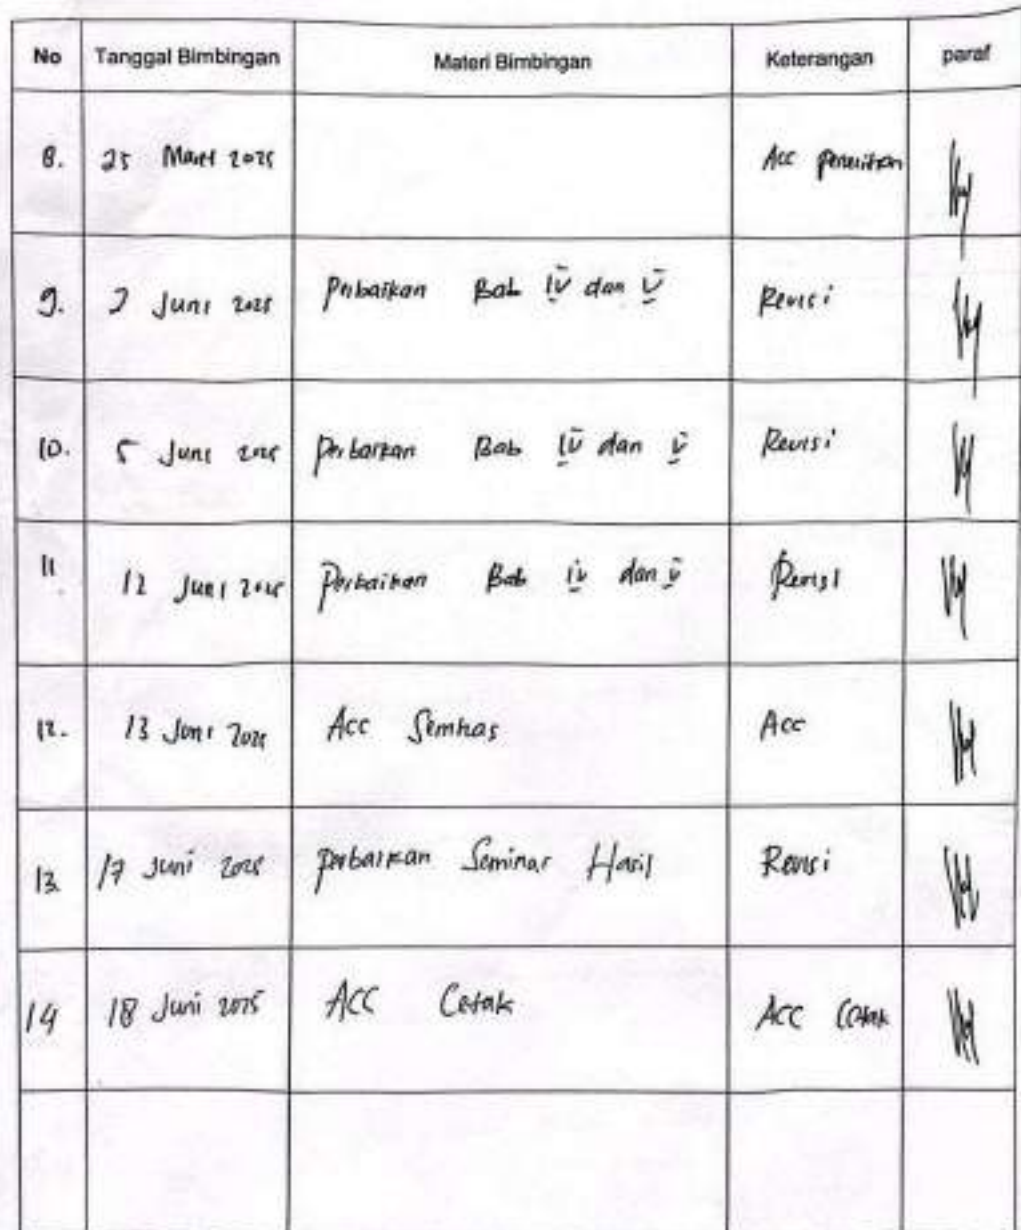 No Tanggal Bimbingan Materi Bimbingan Keterangan paraf
8. 25 Maret 2025 Acc penelitian
9. 2 Juni 2025 Perbaikan Bab IV dan V Revisi
10. 5 Juni 2025 Perbaikan Bab IV dan V Revisi
11 12 Juni 2025 Perbaikan Bab IV dan V Revisi
12. 13 Juni 2025 Acc Semhas Acc
13 17 Juni 2025 Perbaikan Seminar Hasil Revisi
14 18 Juni 2025 ACC Cetak ACC Cetak